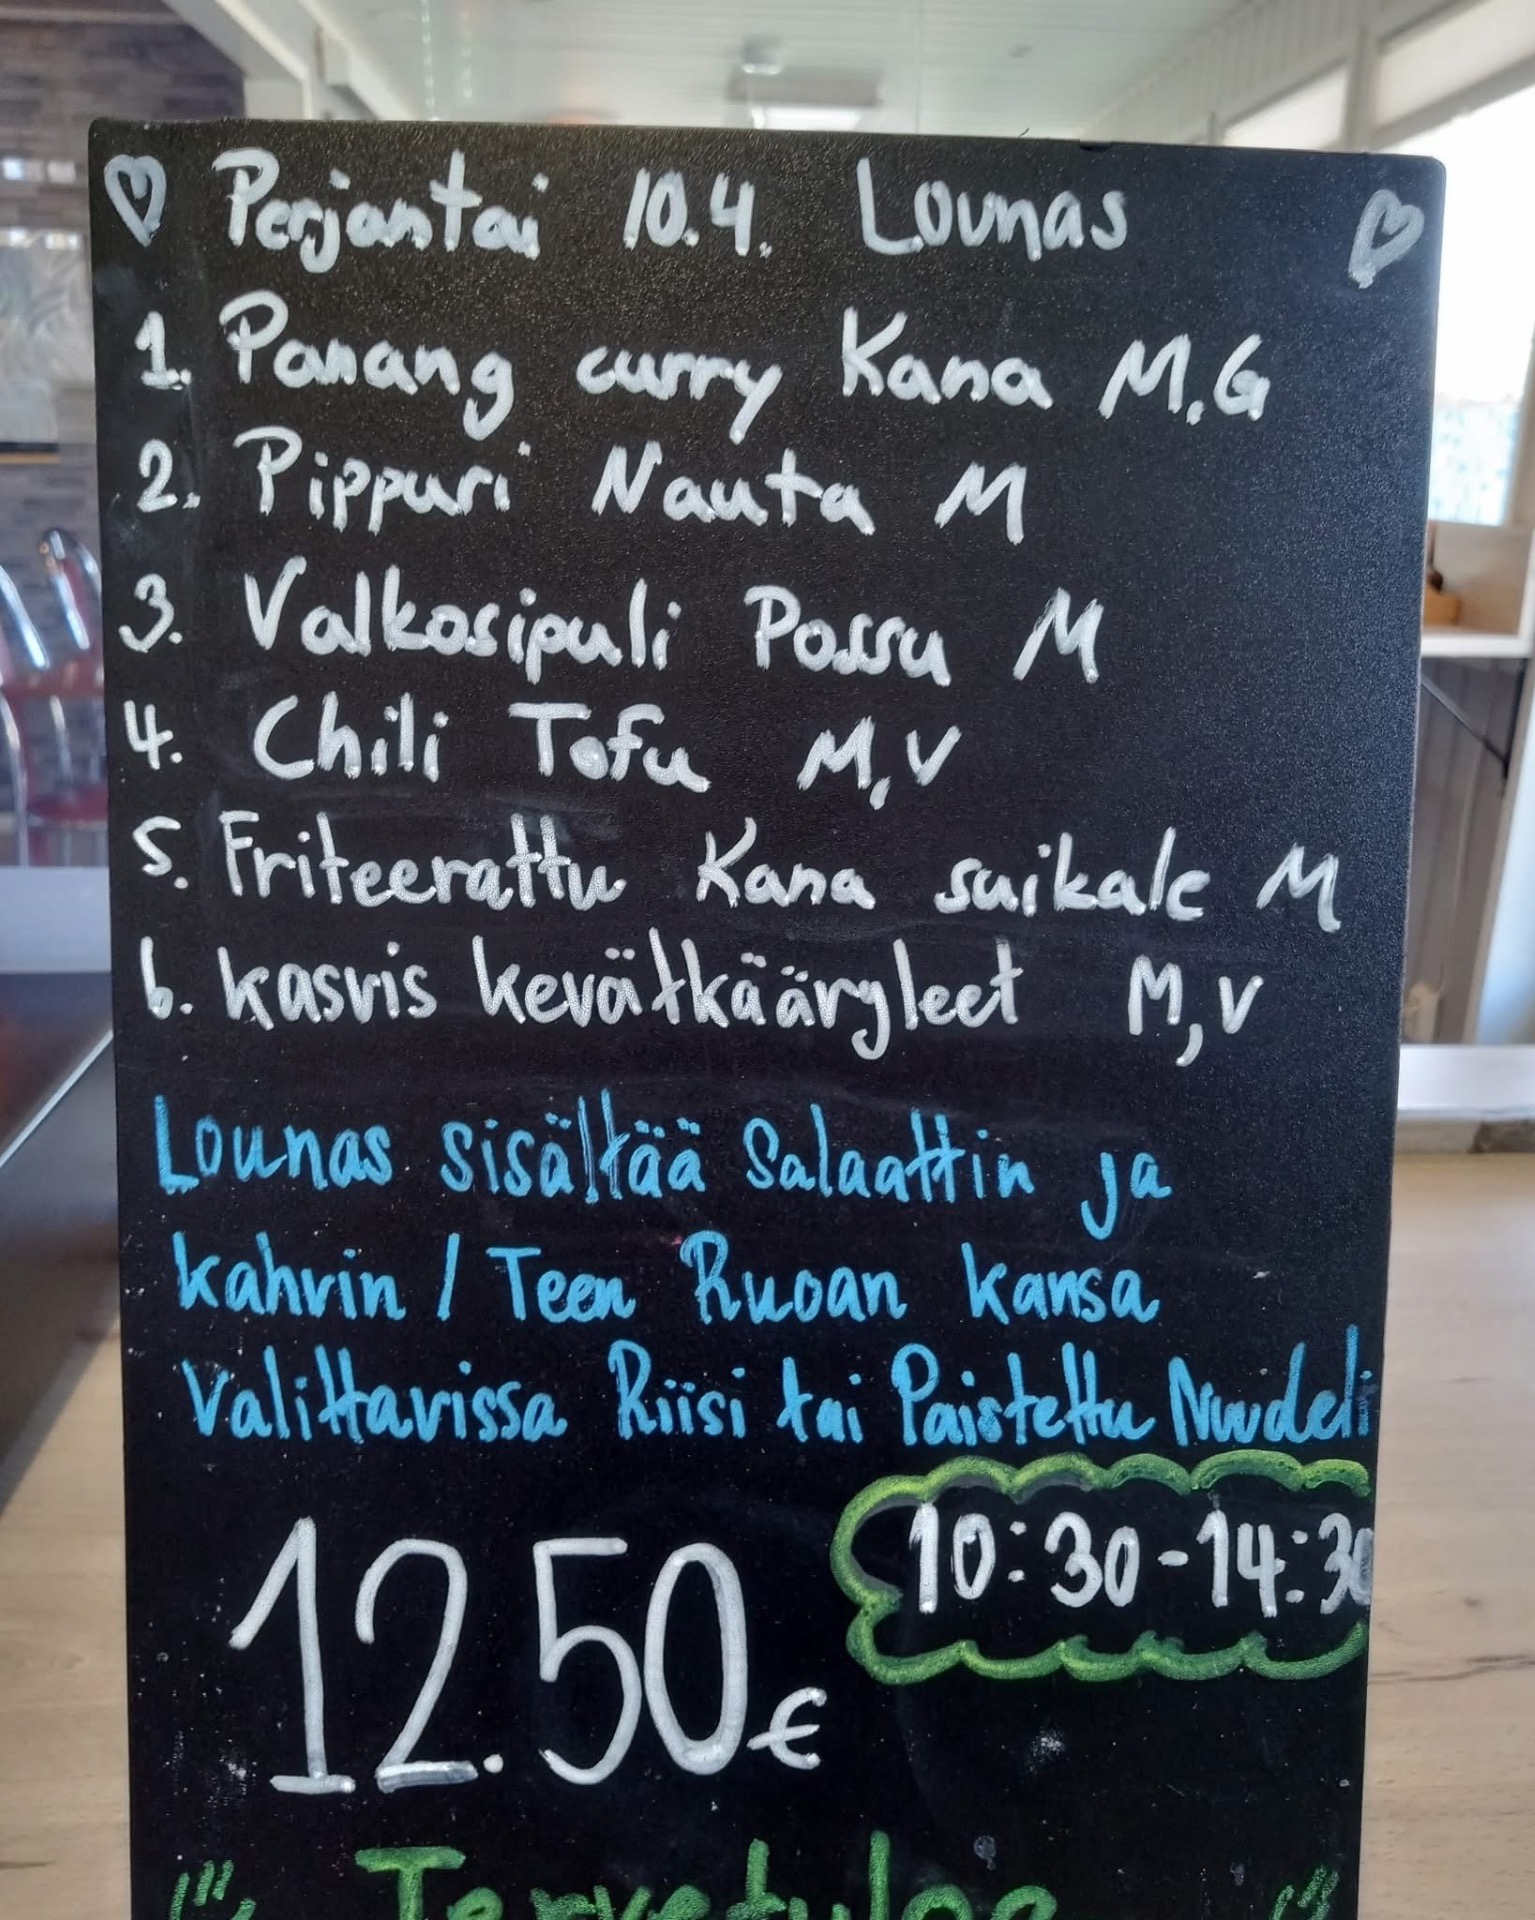 Perjantai 10.4. Lounas
1. Panang curry Kana M,G
2. Pippuri Nauta M
3. Valkosipuli Possu M
4. Chili Tofu M,V
5. Friteerattu Kana suikale M
6. kasvis kevätkääryleet M,V
Lounas sisältää Salaattin ja
kahvin / Teen Ruoan kansa
Valittavissa Riisi tai Paistettu Nuudeli
10:30-14:30
12.50€
Tervetuloa